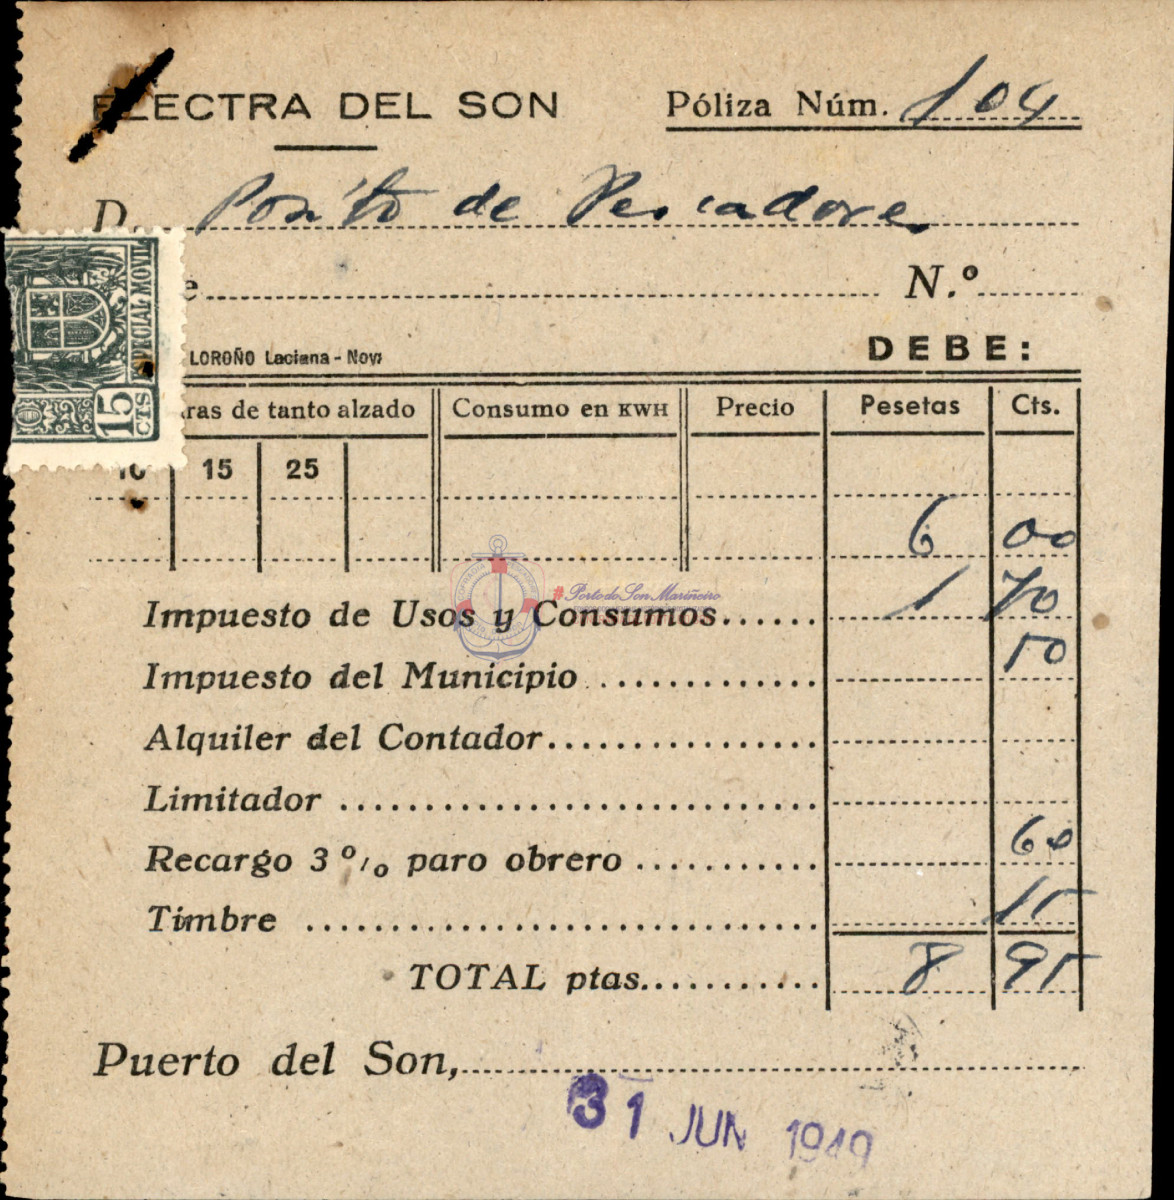 ELECTRA DEL SON
Póliza Núm. 104
D. Posito de Pescadores
e N.º
LOROÑO Laciana - Nov
DEBE:
ESPECIAL MOVIL
15 CTS
ras de tanto alzado Consumo en KWH Precio Pesetas Cts.
10 15 25
6 00
Impuesto de Usos y Consumos 1 70
Impuesto del Municipio 50
Alquiler del Contador
Limitador
Recargo 3 º/o paro obrero 60
Timbre 15
TOTAL ptas. 8 95
Puerto del Son,
31 JUN 1949
#Porto do Son Mariñeiro